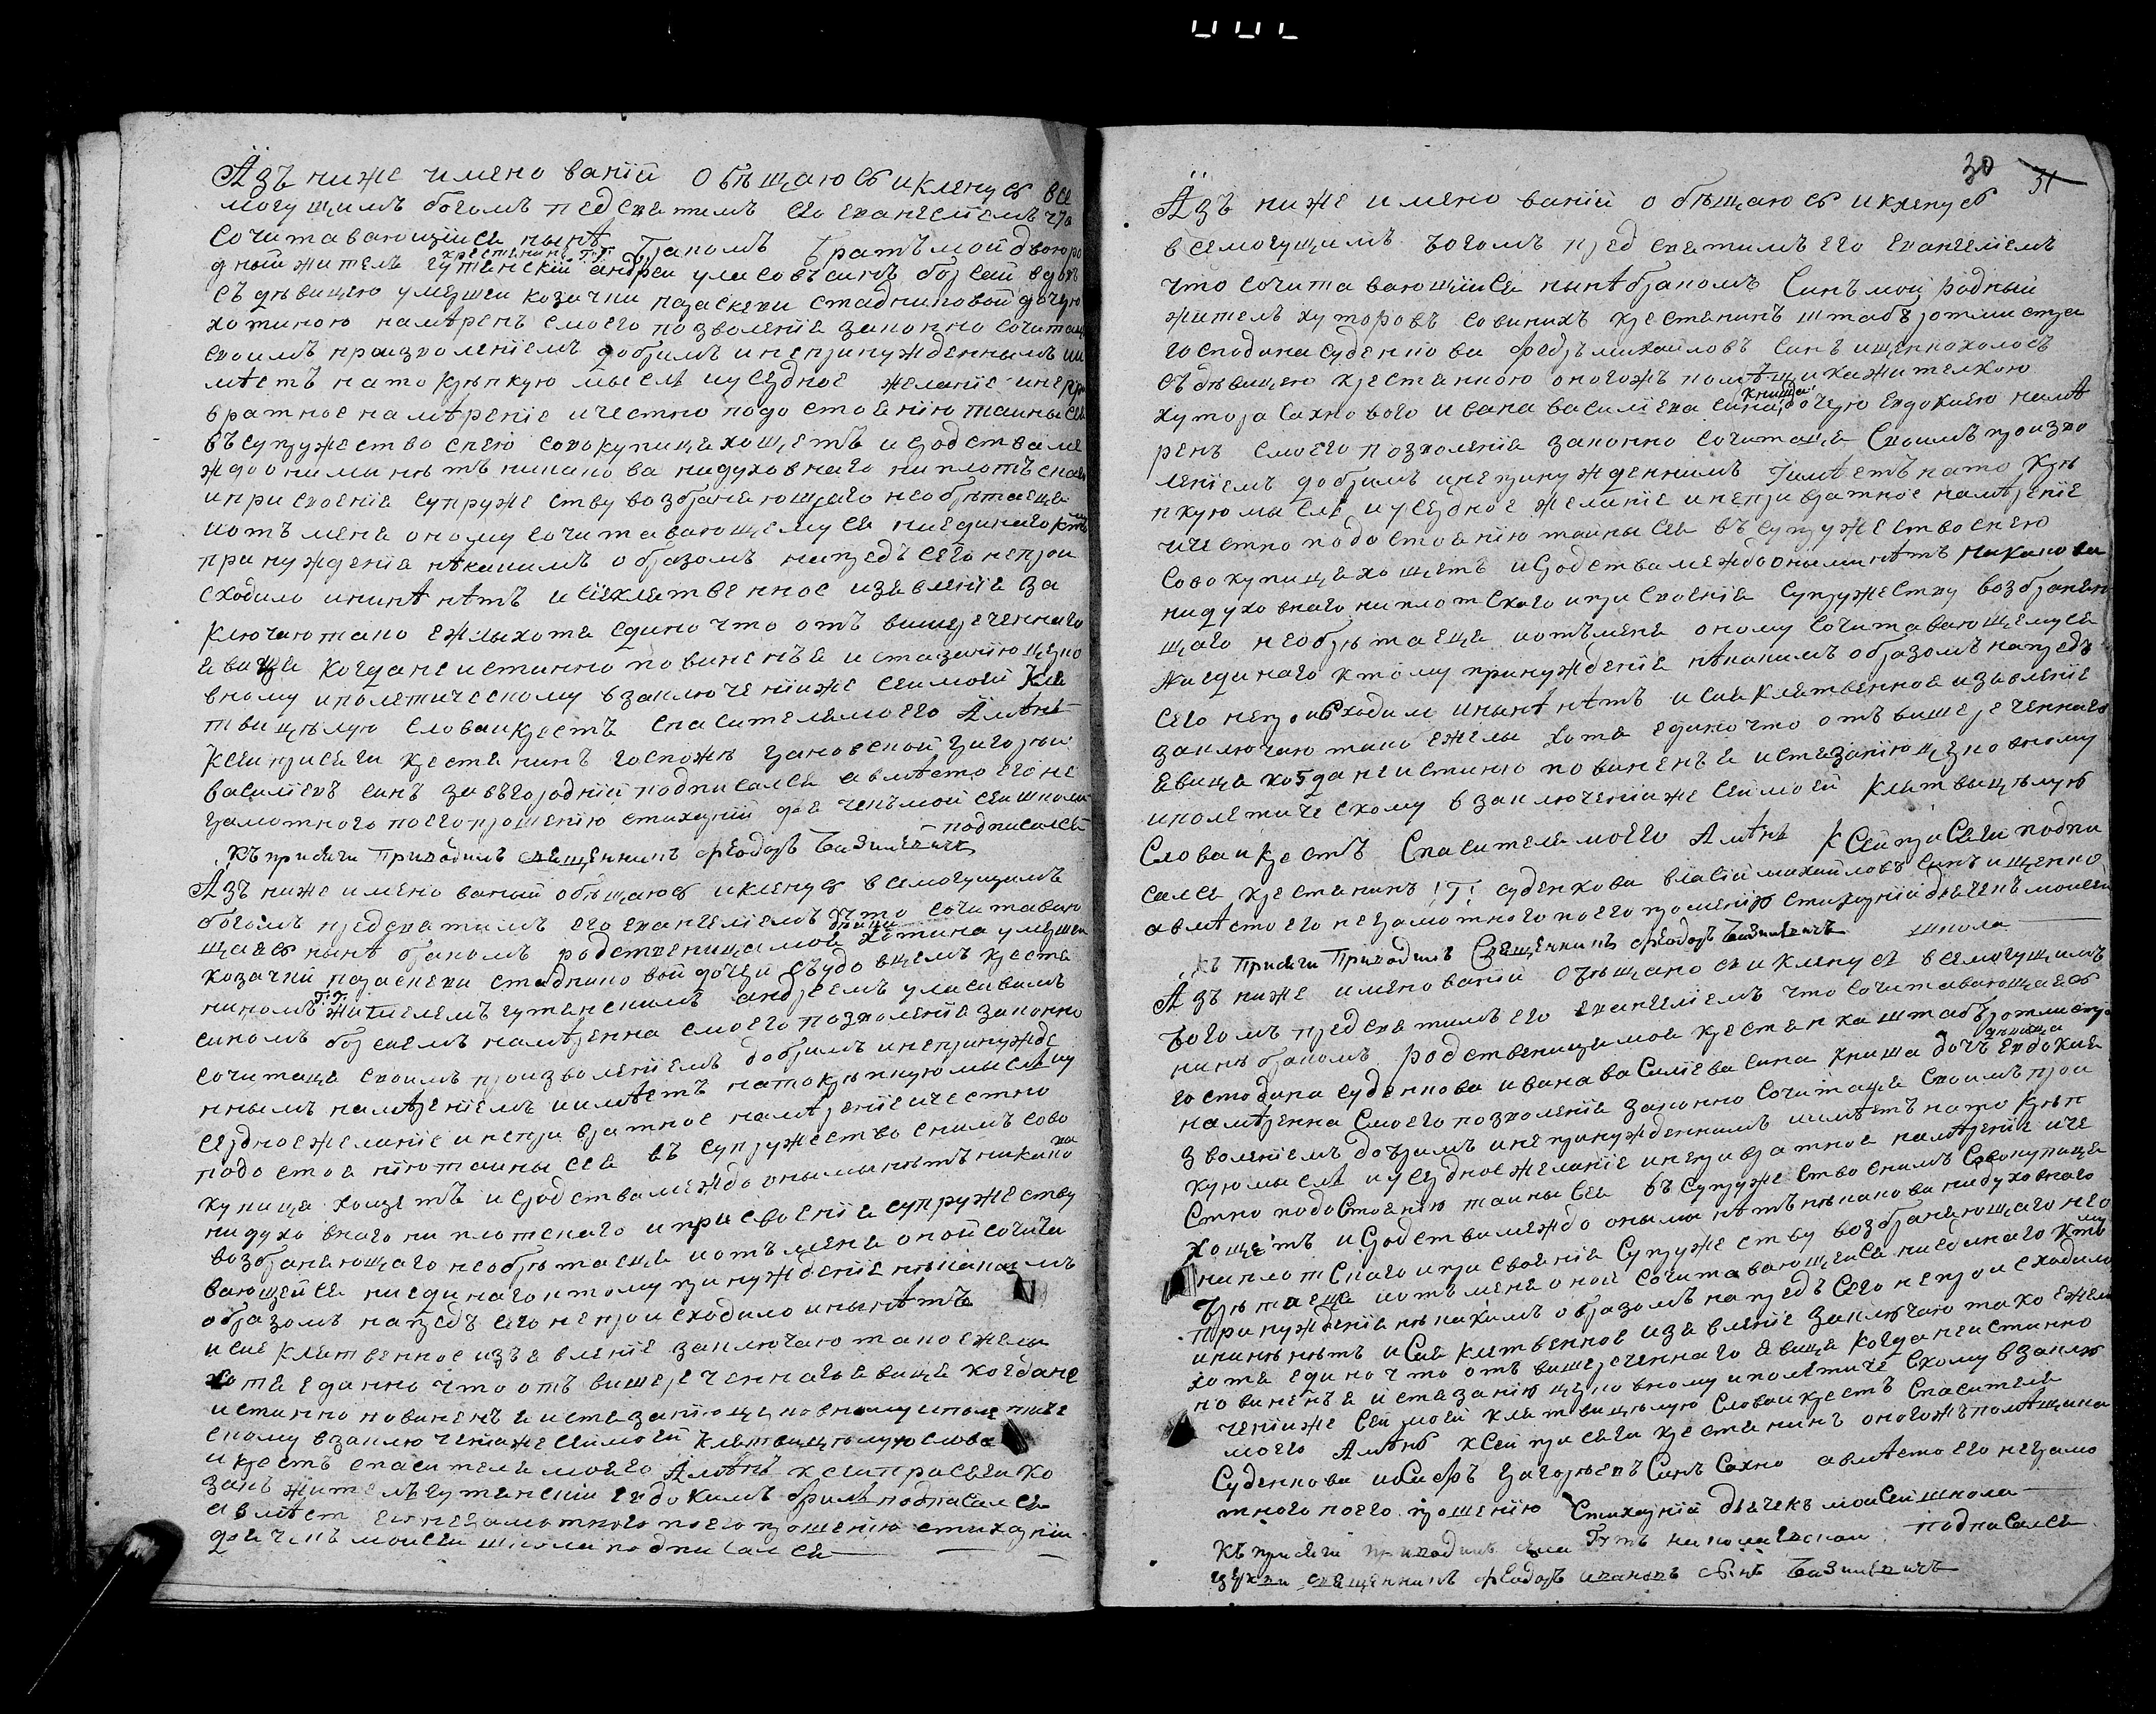 Азъ ниже имено ваній обѣщаюсь и кленусь все
могущимъ богомъ пед светимъ его евангелiемъ что
сочитаваюшiйсе нынѣ браномъ братъ мой двоюро
крестенинъ г:г:
дный жителъ гутенскiй андрей уласовъ синъ борсай вдовъ
съ дѣвицею умершеи козачки параскеви стадниковой дочерю
хотиною намѣренъ смоего позволенiе законно сочитаце
своимъ праизволенiемъ добримъ и непринужденнымъ и и
мѣетъ на то крѣпкую мысль иусердное желанiе и непре
вратное намѣренiе и честно подостоенiю тайны сее
въ супружество снею совокупице хощетъ и сродства ме
ждо оними нѣтъ никакова нидуховнаго ни плотьскаго
и при своенiе супружеству возбранеющаго необрѣтаеце
и отъ мене оному сочитавающемусе ниединаго ктому
принужденiе нѣкакимъ образомъ напредъ сего непрои
сходило ининѣ нѣтъ и сiе клетвенное изевленiе за
ключаю тако ежлы хоте едино что отъ вишереченнаго
евице когда не истинно повиненъ е истезанiю церко
вному и полетическому взаключенiи же сей моей кле
твы цѣлую слова и крестъ спасителе моего Аминь
к сей присеги крестенинъ госпожѣ рановской григорiй
василiевъ синъ завѣгородній подписалсе а вмѣсто его не
грамотного по его прошенiю стихарнiй дьячекъ мойсей школа
подписалсе
къ присяги приводилъ священникъ феодоръ Базилевичъ
Азъ ниже имено ваный обѣщаюсь и кленусь всемогущимъ
богомъ предсветимъ его евангелiемъ что сочитаваю
дѣвица
щаесь нынѣ браномъ родственица мое хотина умершеи
козачки параскеви стадниковой дочери съ удовцемъ кресте
г:г:
ниномъ жителемъ гутенскимъ андреемъ уласивимъ
синомъ борсаемъ намѣренна смоего позволенiе законно
сочитаце своимъ произволенiемъ добримъ и непринужде
ннымъ намѣренiемъ и имѣетъ на то крѣпкую мысль и у
сердное желанiе и непривратное намѣренiе и честно
подостоенiю тайны сее въ супружество снимъ сово
купице хощетъ и сродства междо оными нѣтъ никакова
нидуховнаго ни плотскаго и при своенiе супружеству
возбранеющаго необрѣтаеце и отъ мене оной сочита
вающейсе ниединаго ктому принужденiе нѣкакимъ
образомъ напредъ сего непроисходило и нынѣ нѣтъ
и сiе клетвенное изъевленiе заключаю тако ежели
хоте единно что отъ вишереченнаго евице когда не
истинно повиненъ е истезанiю церковному и полетиче
скому взаключенiи же сей моей клетвы цѣлую слова
и крестъ спасителе моего Аминь к сей присеги ко
закъ жителъ гутенскiй евдокимъ подписалсе
а вмѣст его неграмотного по его прошенiю стихарнiй
дьячекъ мойсей школа подписалсе
30 31
Азъ ниже имено ваній обѣщаюсь и кленусь
всемогущимъ богомъ пред светимъ его евангелiемъ
что сочитаваюшiйсе нынѣ браномъ синъ мой родный
жителъ хуторовъ совинихъ крестенинъ штабъ ротмистра
господина суденкова федръ михайловъ синъ ищенко холостъ
съ дѣвицею крестенкою оногожъ помѣщика жителкою
книша
хутора Сахнового ивана василiева сина дочерю евдокiею намѣ
ренъ смоего позволенiе законно сочитаце своимъ произво
ленiемъ добримъ и непринужденнимъ и имѣетъ на то крѣ
пкую мысль и усердное желанiе и непривратное намѣренiе
и честно подостоенiю тайны сее въ супружество снею
совокупице хощетъ и сродства междо оными нѣтъ никакова
нидуховнаго ни плотского и при своенiе супружеству возбранею
щаго необрѣтаеце и отъ мене оному сочитавающемусе
ниединаго ктому принужденiе нѣкакимъ образомъ напредъ
сего непроисходило инынѣ нѣтъ и сие клетвенное изевленiе
заключаю тако ежелы хоте едино что отъ вишереченнаго
евице когда не истинно повиненъ е истезанiю церковному
и полетическому взаключенiи же сей моей клетвы цѣлую
слова и крестъ спасителе моего Аминь к сей присеги подпи
салсе крестенинъ !Г! суденкова власiй михайловъ синъ ищенко
а вмѣсто его неграмотного по его прошенiю стихарнiй дьячекъ мойсей
школа
къ присяги приводилъ Священникъ феодоръ Базилевичъ
Азъ ниже именованiй обѣщаюсе и кленусе всемогущимъ
богомъ предсветимъ его евангелiемъ что сочитавающаесь
нинѣ браномъ родственица мое крестенка штабъ ротмистра
дѣвица
господина суденкова ивана василiева сина книша дочъ евдокие
намѣренна смоего позволенiе законно сочитаце своимъ прои
зволенiемъ добримъ и непринужденнимъ и имѣетъ на то крѣп
кую мысль и усердное желанiе и непривратное намѣренiе и че
стно подостоенiю тайны сее въ супружество снимъ совокупице
хощетъ и сродства междо оными нѣтъ нѣкакова нидуховнаго
ни плотскаго и при своенiе супружеству возбранеющаго нео
брѣтаеце и отъ мене оной сочитавающейсе ниединаго ктому
принужденiе нѣкакимъ образомъ напредъ сего непроисходило
инынѣ нѣтъ и сие клетвенное изевленiе заключаю тако ежели
хоте едино что отъ вишереченнаго евице когда не истинно
повиненъ е истезанiю церковному и полетическому взаклю
ченiи же сей моей клетвы цѣлую слова и крестъ спасителе
моего Аминь к сей присеги крестенинъ оногожъ помѣщика
суденкова иосифъ григорiевъ синъ Сахно а вмѣсто его неграмо
тного по его прошенiю стихарнiй дьячекъ мойсей школа
подписалсе
къ присяги приводилъ села Гутъ николаевской
церкви священникъ феодоръ ивановъ синъ Базилевичъ